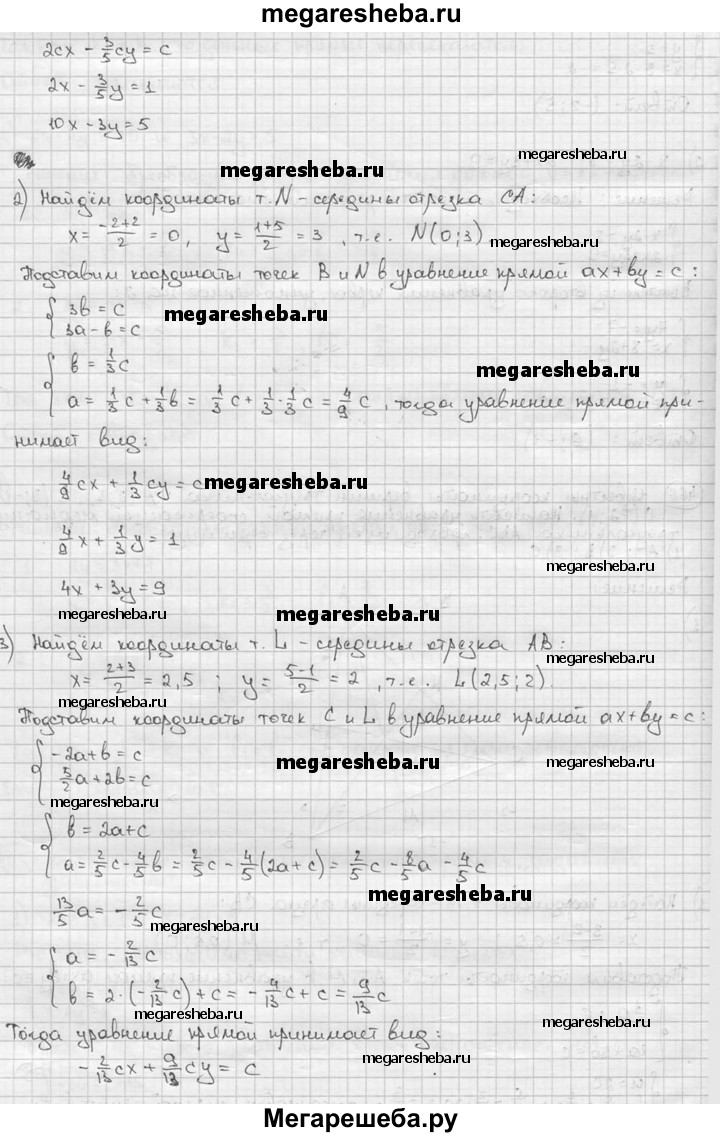 megaresheba.ru
2cx - 3/5 cy = c
2x - 3/5 y = 1
10x - 3y = 5
megaresheba.ru
megaresheba.ru
2) Найдём координаты т. N - середины отрезка CA:
x = (-2+2)/2 = 0, y = (1+5)/2 = 3, т.е. N(0;3)
megaresheba.ru
Подставим координаты точек B и N в уравнение прямой ax+by=c:
{ 3b = c
3a - b = c
megaresheba.ru
{ b = 1/3 c
megaresheba.ru
a = 1/3 c + 1/3 b = 1/3 c + 1/3 · 1/3 c = 4/9 c, тогда уравнение прямой при-
нимает вид:
4/9 cx + 1/3 cy = c
megaresheba.ru
4/9 x + 1/3 y = 1
megaresheba.ru
4x + 3y = 9
megaresheba.ru
megaresheba.ru
3) Найдём координаты т. L - середины отрезка AB:
x = (2+3)/2 = 2,5 ; y = (5-1)/2 = 2, т.е. L(2,5;2)
megaresheba.ru
Подставим координаты точек C и L в уравнение прямой ax+by=c:
{ -2a+b = c
5/2 a + 2b = c
megaresheba.ru
megaresheba.ru
megaresheba.ru
{ b = 2a+c
a = 2/5 c - 4/5 b = 2/5 c - 4/5 (2a+c) = 2/5 c - 8/5 a - 4/5 c
megaresheba.ru
13/5 a = - 2/5 c
megaresheba.ru
{ a = - 2/13 c
b = 2·(- 2/13 c) + c = - 4/13 c + c = 9/13 c
megaresheba.ru
megaresheba.ru
Тогда уравнение прямой принимает вид:
megaresheba.ru
- 2/13 cx + 9/13 cy = c
Мегарешеба.ру